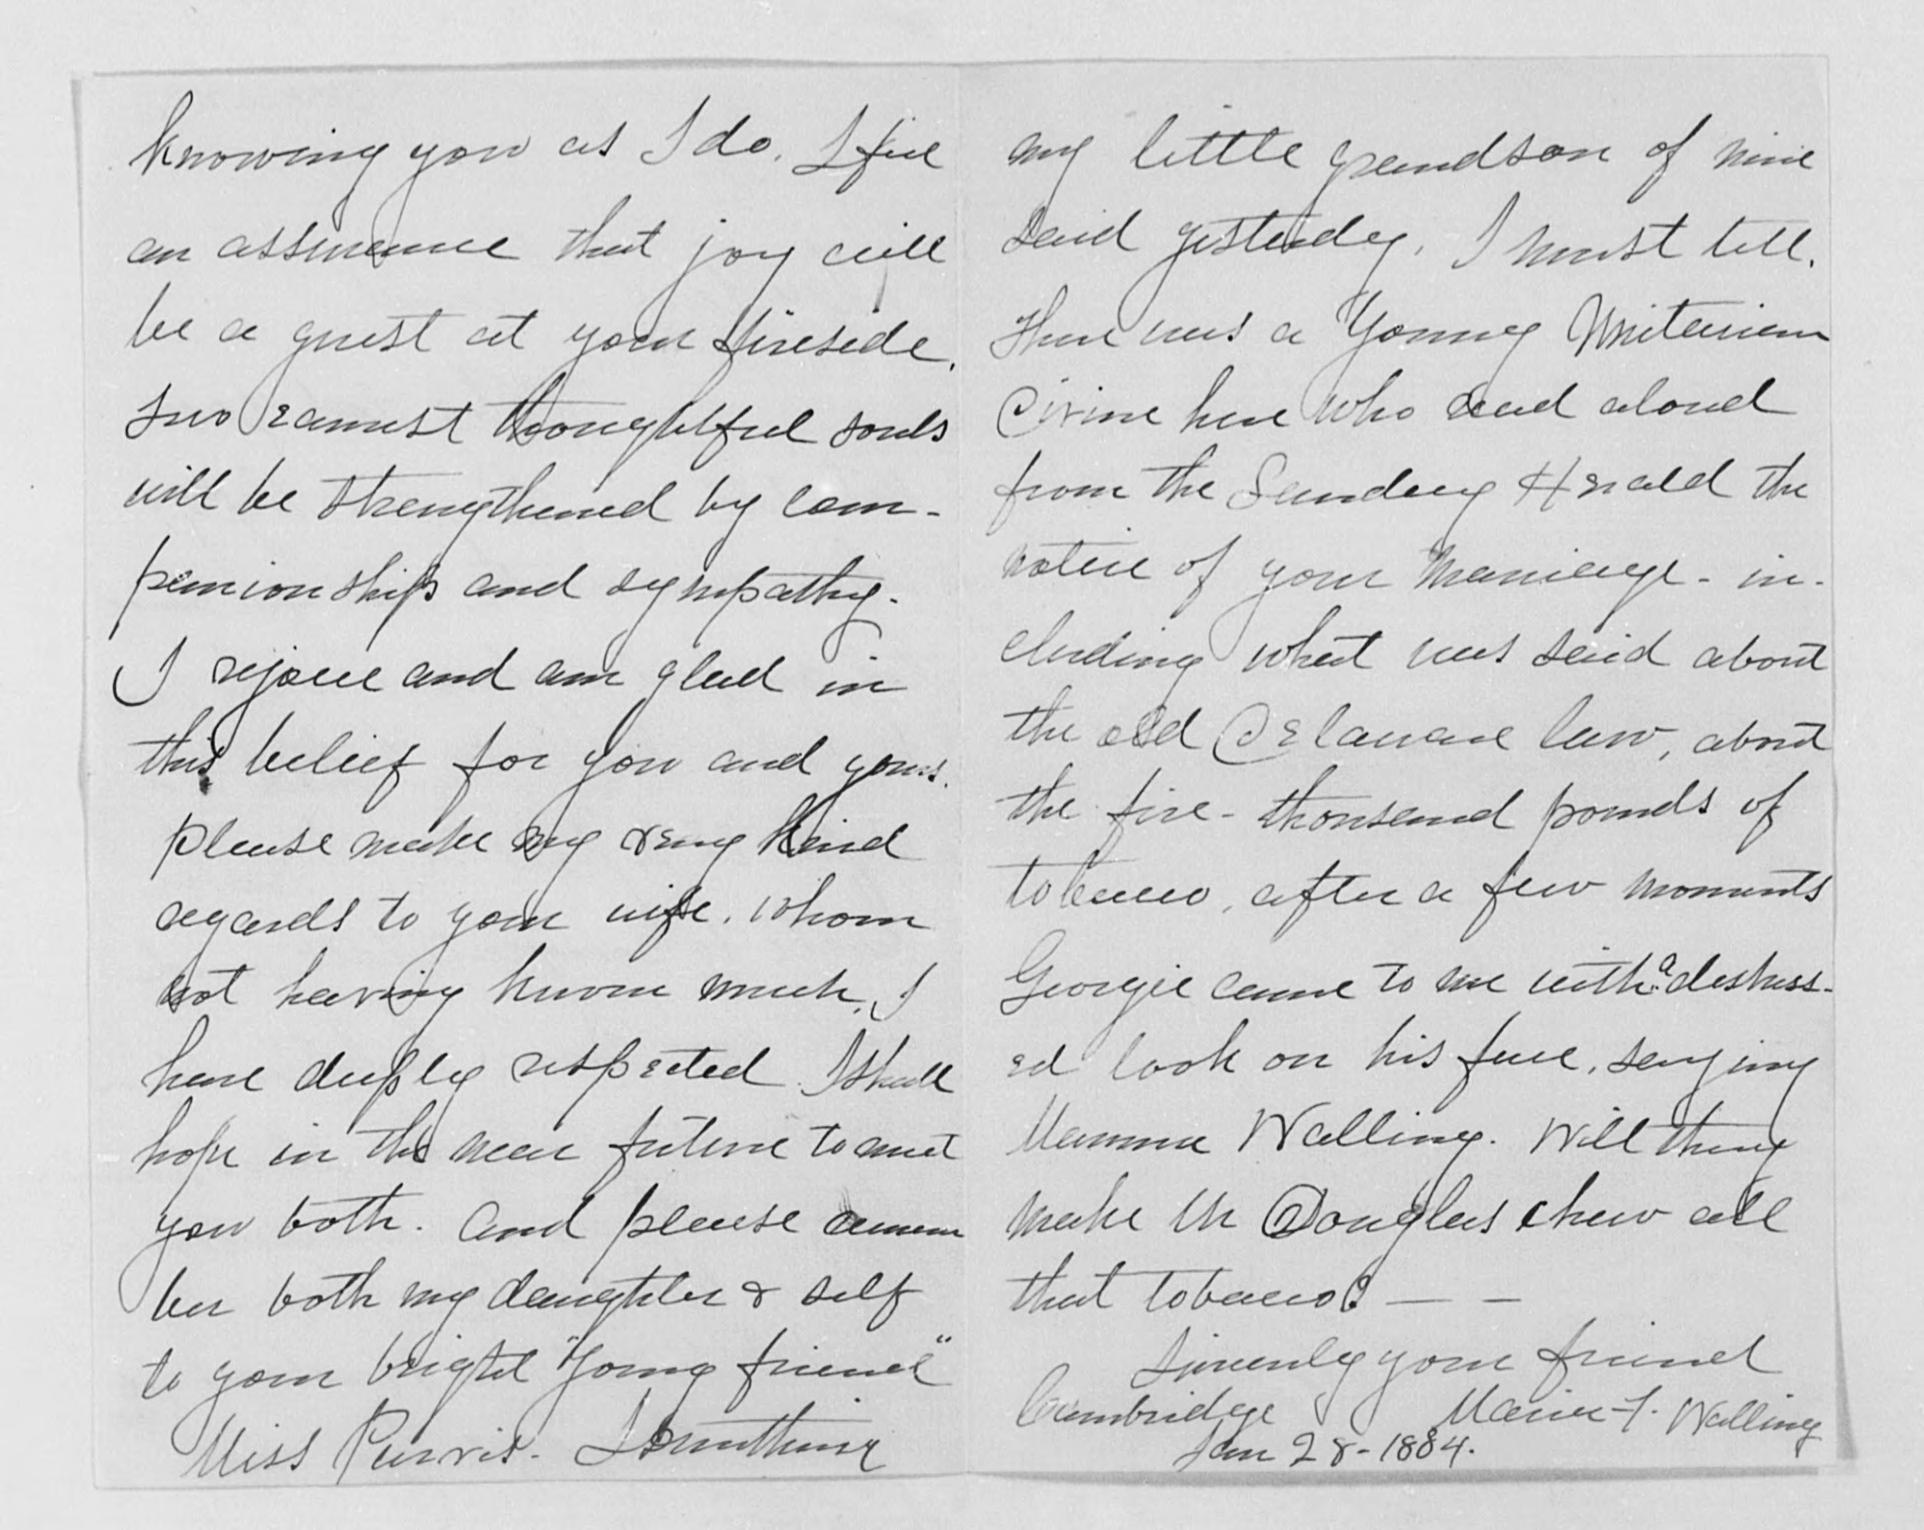 knowing you as I do. I feel
an assurance that joy will
be a guest at your fireside.
two earnest thoughtful souls
will be strengthened by com-
panionship and sympathy.
I rejoice and am glad in
this belief for you and yours.
please make my very kind
regards to your wife. whom
not having known much, I
have deeply respected. I shall
hope in the near future to meet
you both. And please remem
ber both my daughter & self
to your bright "young friend"
Miss Purvis. Something
my little grandson of nine
said yesterday. I must tell.
There was a Young Unitarian
Divine here who read aloud
from the Sunday Herald the
notice of your Marriage - in-
cluding what was said about
the old Delaware law, about
the five-thousand pounds of
tobacco, after a few moments
Georgie came to me with a distress-
ed look on his face, saying
Mamma Walling. Will they
make Mr Douglas chew all
that tobacco? — —
Sincerely your friend
Cambridge Maria F. Walling
Jan 28-1884.